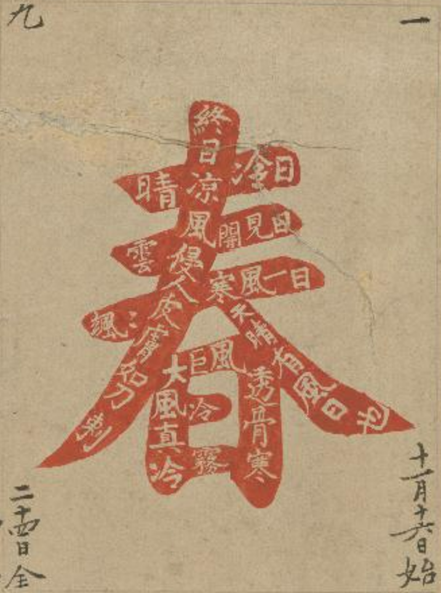 一九
日冷晴
日見開雲
日一風寒飄:
終日涼風侵人皮膚如刀刺
天晴有風日也
大風真冷
風巨
透骨寒
冷
霧
十一月十六日始
二十四日全